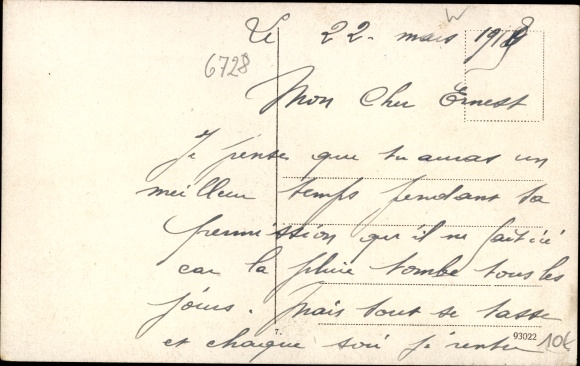 Le 22 - mars 191
6728
Mon Cher Ernest
Je pense que tu auras un
meilleur temps pendant ta
permission qu'il ne fait ici
car la pluie tombe tous les
jours. Mais tout se tasse
et chaque soir je rentre
7.
93022
10€